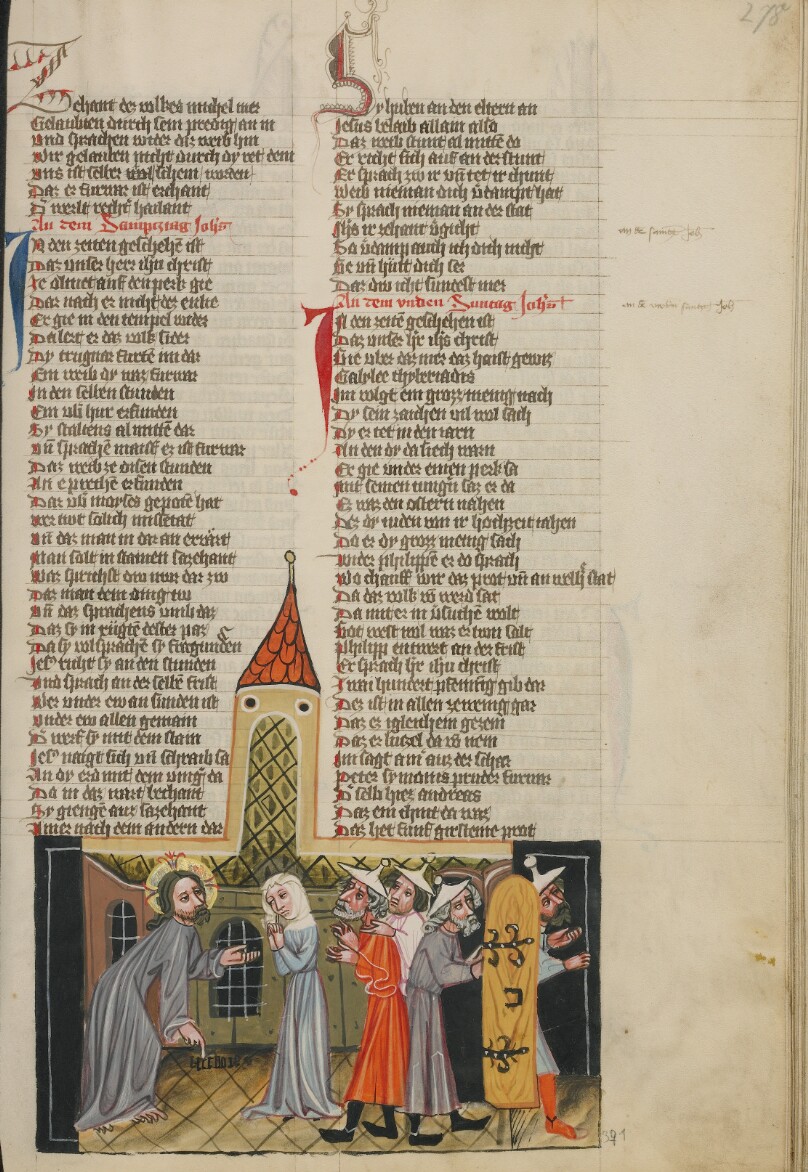 278
Zehant des volkes michel mer
Gelaubten durch sein predig an in
Und sprachen wider daz weib hin
Wir gelauben nicht durch dy ret dein
uns ist selber schein worden
Daz er furwar ist erchant
D werlt recht hailant
An dem Sampztag Joh's
In den zeiten geschehen ist
Daz unser herr ihu christ
ze olivet auf den perk gie
Dar nach er nicht der enlie
Er gie in den tempel wider
Da lert er daz volk sider
Dy trugnar furten im dar
Ein weib dy waz furwar
In den selben stunden
Ein ubl hur erfunden
Sy stalten al mitten dar
un sprachen maister ez ist furwar
Daz weib ze disen stunden
An eprechen erfunden
Daz ubl moyses gepoten hat
wer tut solich missetat
un daz man in dar an ervart
Man solt in stainen sazehant
Waz sprichst dw nur dar zw
Daz man dem ding tw
un daz sprachens umb daz
Daz sy in rugten dester paz
Da sy volsprachen sy begunden
Jesus richt sy an den stunden
Und sprach an der selben frist
Wer under ew an sunden ist
under ew allen gemain
D werf sy mit dem stain
Jesus naigt sich un schraib sa
An dy erd mit dem ving da
Da in daz wart bechant
Sy giengen auz sazehant
Imer nach dem andern dar
Sy huben an den eltern an
Jesus belaib allain also
Daz weib stunt al mitten do
Er richt sich auf an der stunt
Er sprach zw ir un tet ir chunt
Weib nieman dich verdampt hat
Sy sprach nieman an der stat
Als ir zehant vergicht
So verdamp auch ich dich nicht
Ge un hutt dich ser
Daz dw icht sundest mer
An dem virden Suntag Joh's
In den zeiten geschehen ist
Daz unser her ihu christ
Gie uber daz mer daz haist gewis
Galylee thyberiadis
Im volgt ein grozz menig nach
Dy sein zaichen vil wol sach
Dy er tet in den iarn
An den dy da siech warn
Er gie under einen perk sa
Mit seinen iungern saz er da
Ez waz den ostern nahen
Der dy iuden von ir hochzeit iahen
Do er dy groz menig sach
Wider philippen er do sprach
Wo chauff wir daz prot un an welher stat
Da daz volk von werd sat
Da mit er in versuchen wolt
Got west wol waz er tun solt
Philipp entwert an der frist
Er sprach her ihu christ
Zwai hundert pfenning gib dar
Der ist in allen zewenig gar
Daz er igleichem gezem
Daz er luzel da von nem
Im sagt ainr auz der schar
Peter symonis pruder furwar
D selb hiez andreas
Daz ein chint da waz
Daz het funf girsteine prot
391